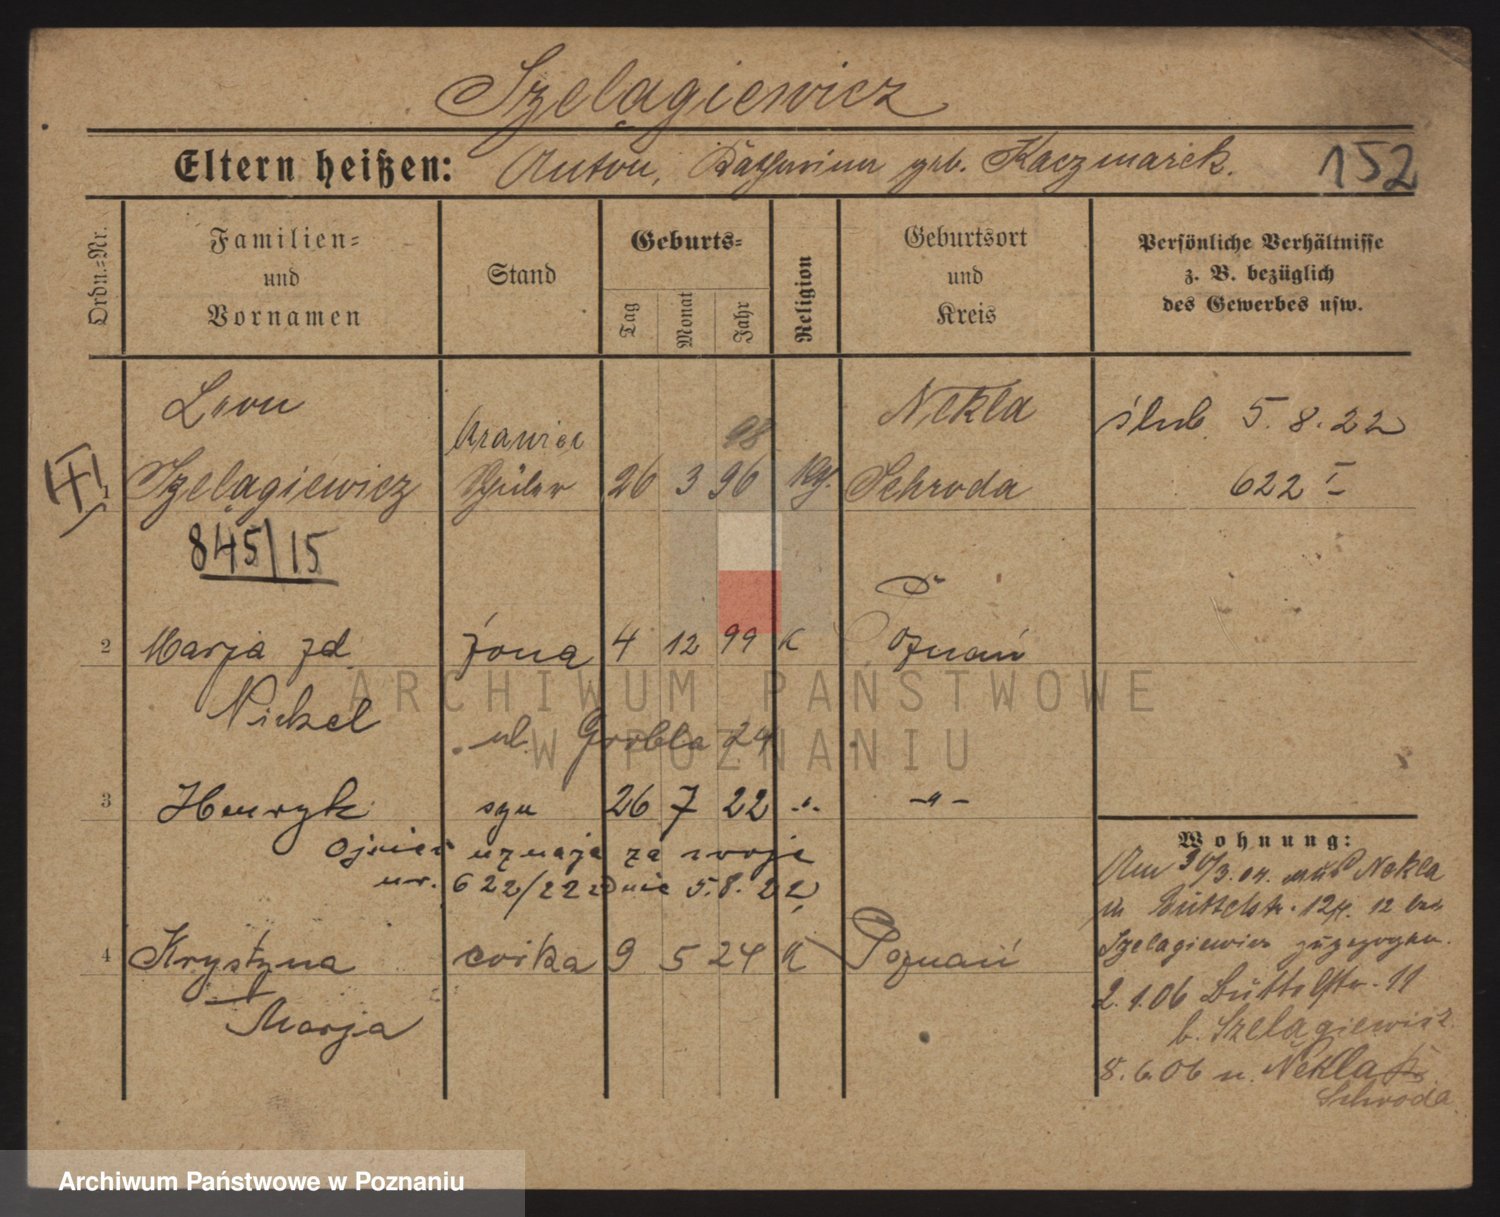 Szelągiewicz
Eltern heißen: Anton, Katharina geb. Kaczmarek.
152
Ordn.=Nr.
Familien=
und
Vornamen
Stand
Geburts=
Tag
Monat
Jahr
Religion
Geburtsort
und
Kreis
Persönliche Verhältnisse
z. B. bezüglich
des Gewerbes usw.
Leon
Krawiec
98
Nekla
ślub 5.8.22
1
Szelągiewicz
Schüler
26
3
96
kth.
Schroda
622 I
845/15
2
Marja zd
żona
4
12
99
K
Poznań
Nickel
ul. Grobla 24
3
Henryk
syn
26
7
22
-"-
-"-
Ojciec uznaje za swoje
nr. 622/22 dnia 5.8.22
4
Krystyna
córka
9
5
24
K
Poznań
Marja
Wohnung:
Am 30/3.04. aus Nekla
in Büttelstr. 12 bei
Szelagiewicz zugezogen.
2.1.06 Büttelstr. 11
b. Szelągiewicz
8.6.06 n. Nekla K.
Schroda
ARCHIWUM PAŃSTWOWE
W POZNANIU
Archiwum Państwowe w Poznaniu